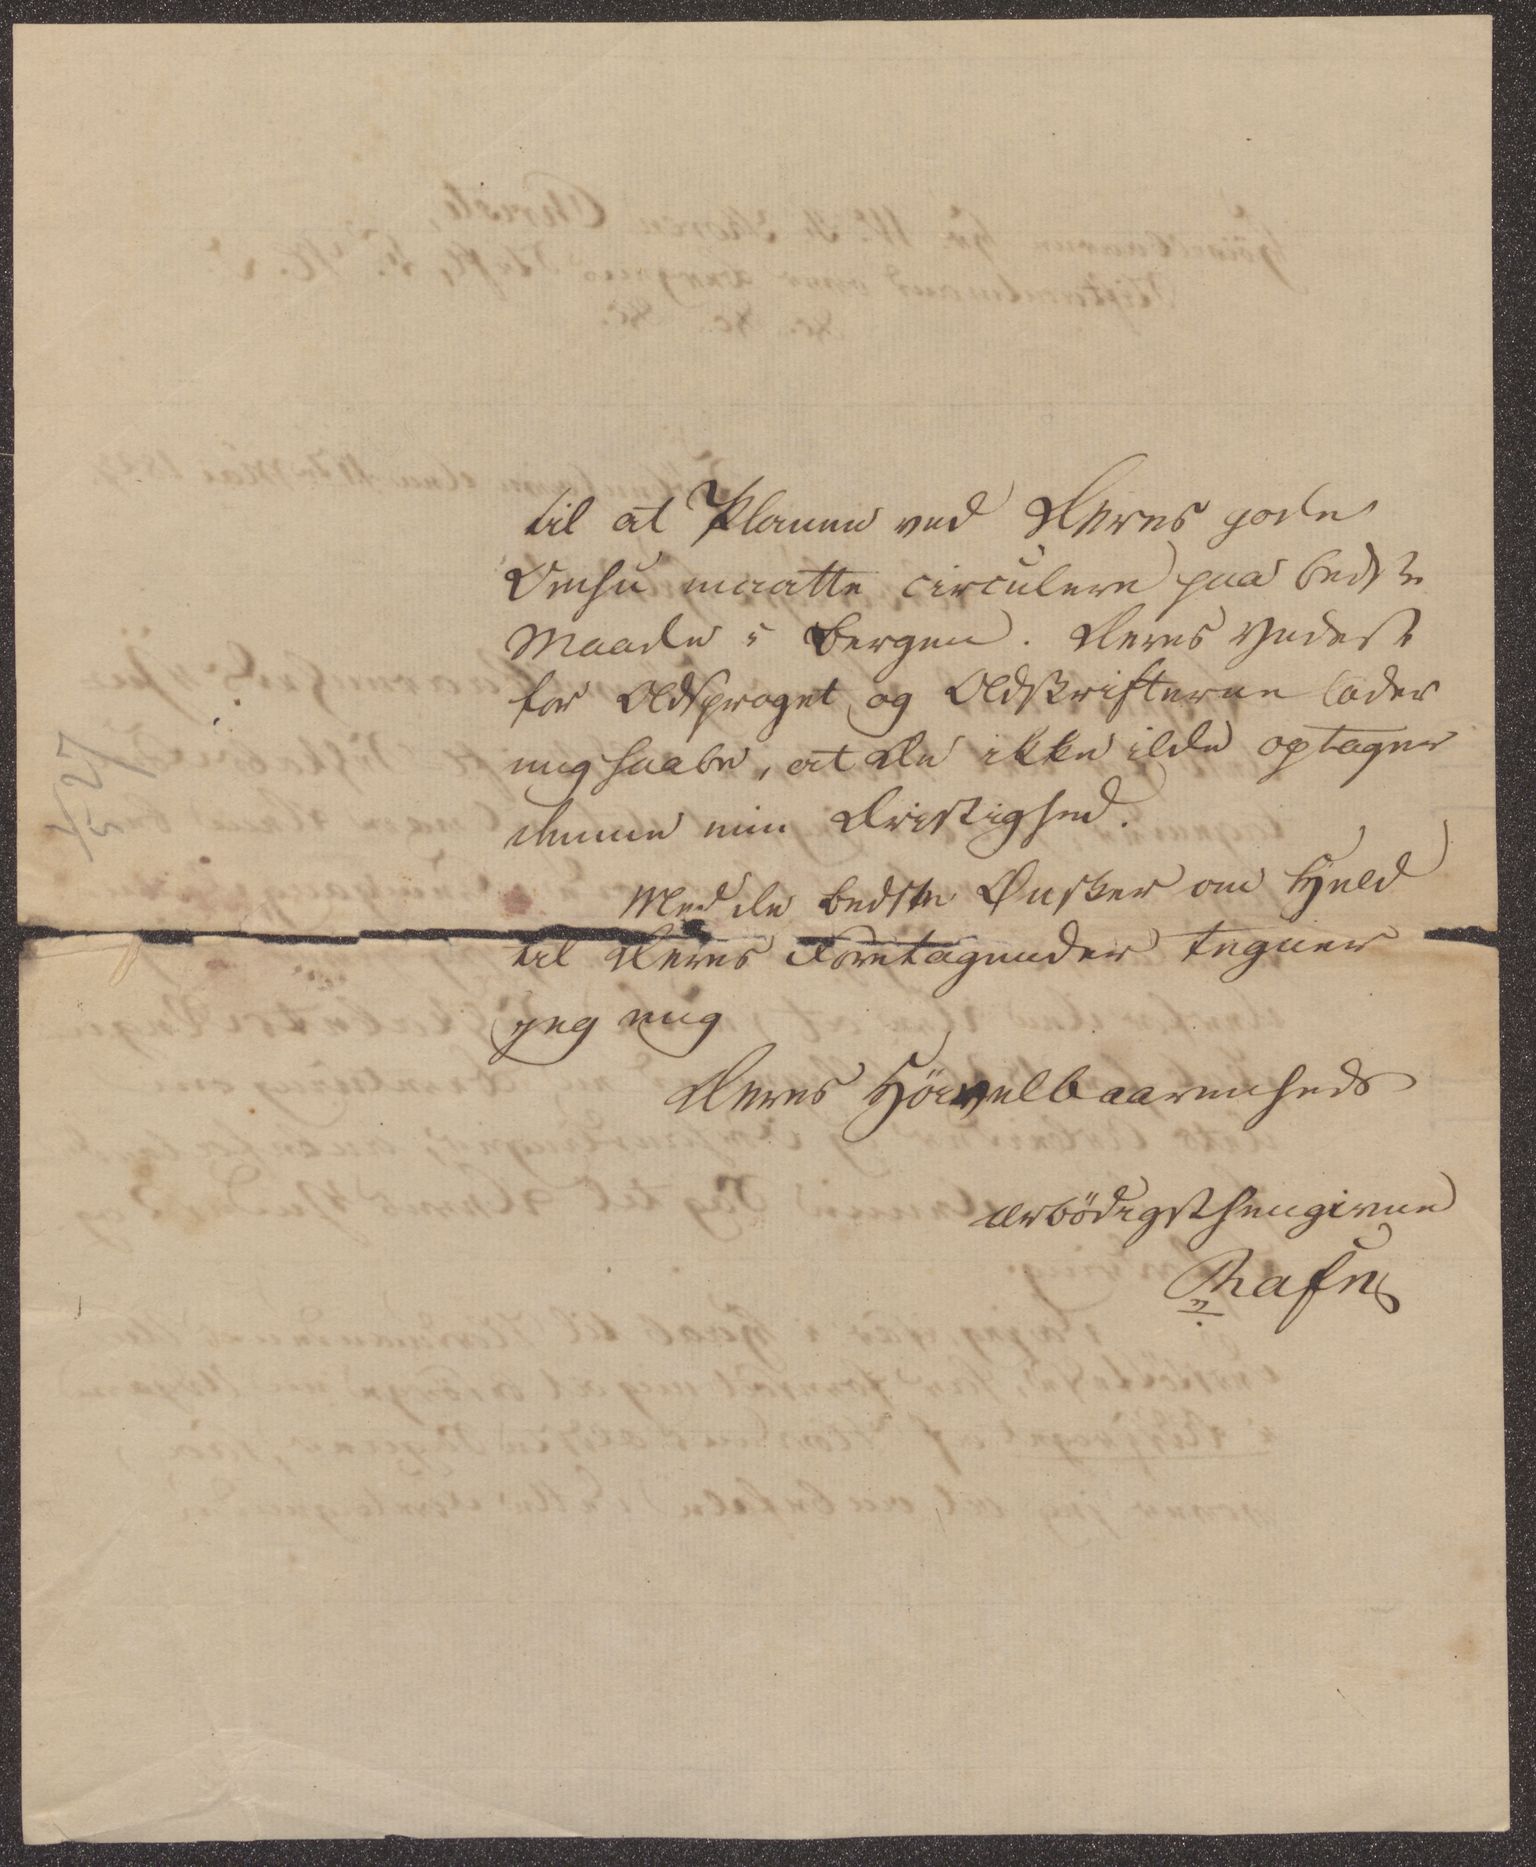 til at Planen ved Deres gode
Omhu maatte circulere paa bedste
Maade i Bergen. Deres Yndest
for Oldsproget og Oldskrifterne lader
mig haabe, at De ikke ilde optager
denne min Dristighed.
Med de bedste Ønsker om Held
til Deres Foretagender tegner
jeg mig
Deres Höivelbaarenheds
ærbödigst hengivne
Rafn